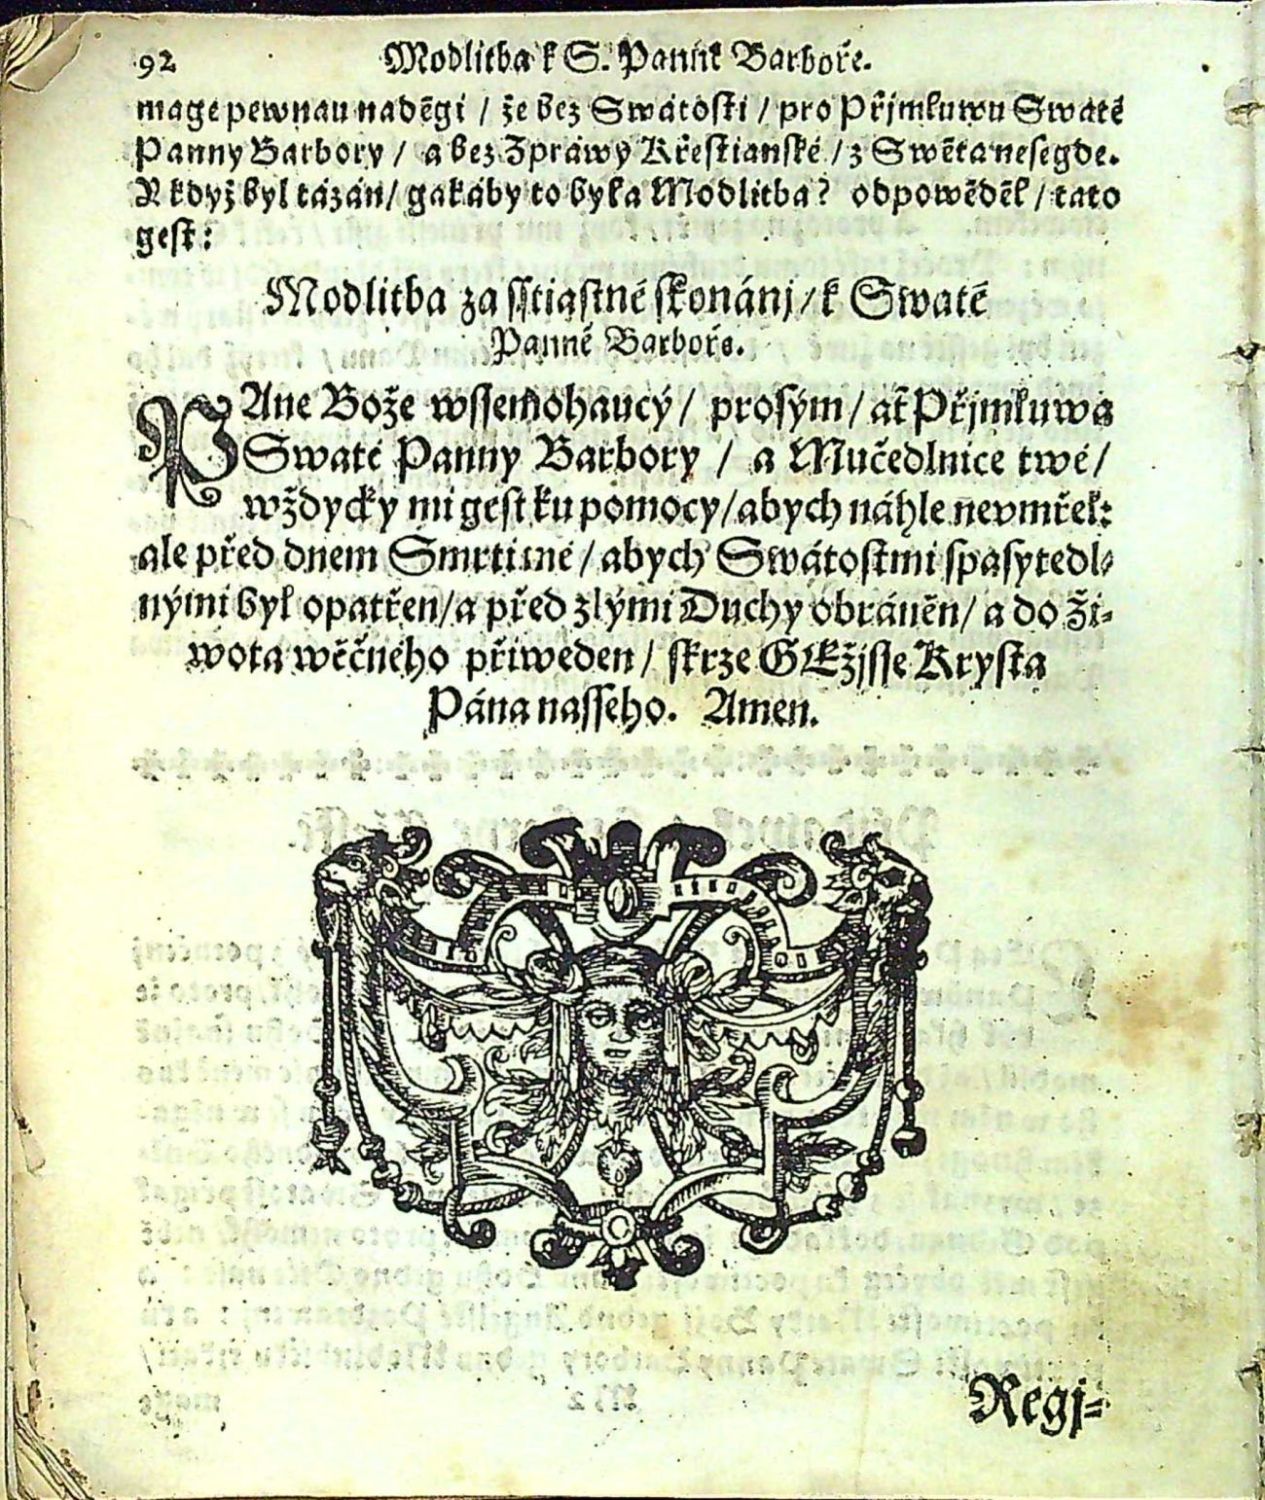 92 Modlitba k S. Panně Barboře.
mage pewnau naděgi / že bez Swátosti / pro Přjmluwu Swaté
Panny Barbory / a bez Zpráwy Křestianské / z Swěta nesegde.
A když byl tázán / gakáby to byla Modlitba? odpowěděl / tato
gest:
Modlitba za sstiastné skonánj / k Swaté
Panně Barboře.
PAne Bože wssemohaucý / prosým / ať Přjmluwa
Swaté Panny Barbory / a Mučedlnice twé /
wždycky mi gest ku pomocy / abych náhle nevmřel:
ale před dnem Smrti mé / abych Swátostmi spasytedl-
nými byl opatřen / a před zlými Duchy obráněn / a do ži-
wota wěčného přiweden / skrze GEžjsse Krysta
Pána nasseho. Amen.
Regj-